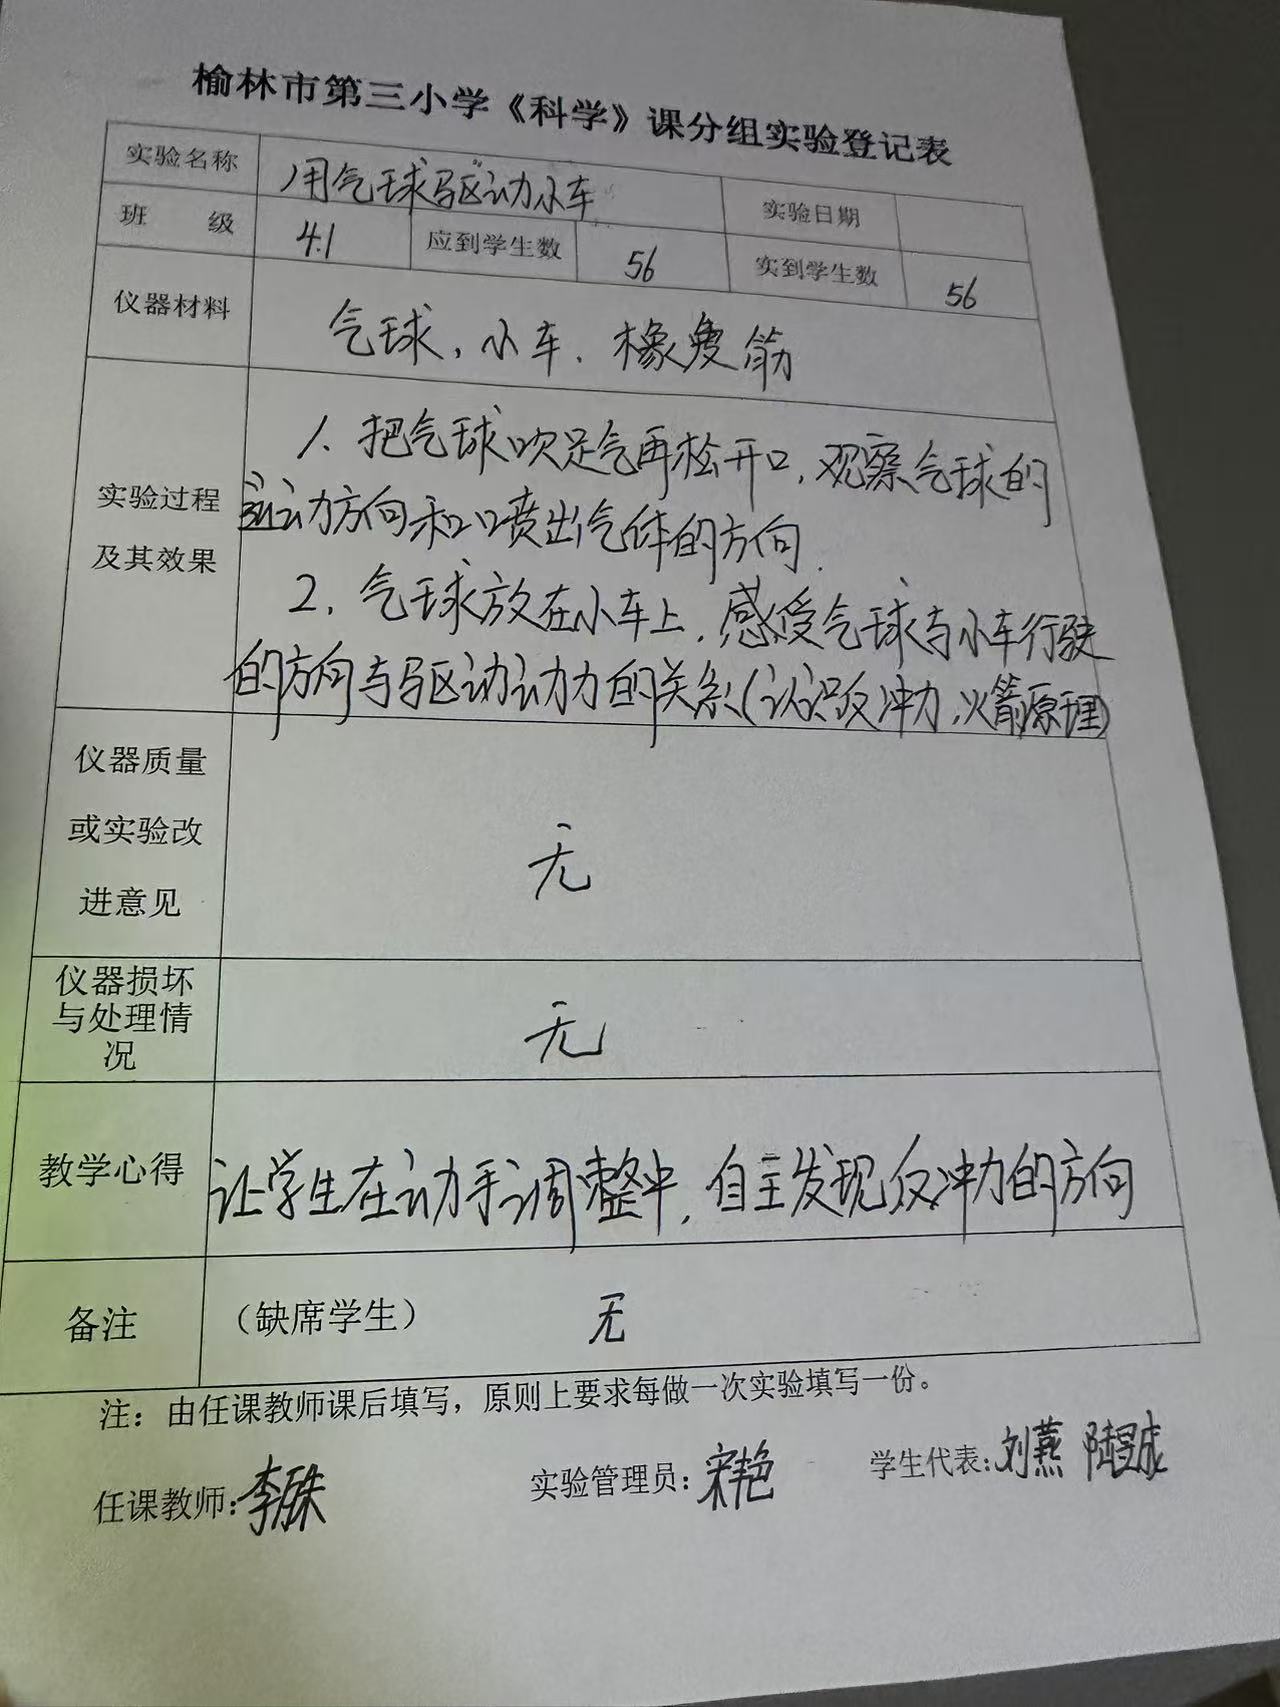 榆林市第三小学《科学》课分组实验登记表
实验名称 用气球驱动小车 实验日期
班 级 4.1 应到学生数 56 实到学生数 56
仪器材料 气球，小车．橡皮筋
1、把气球吹足气再松开口，观察气球的
实验过程 运动方向和口喷出气体的方向．
及其效果
2、气球放在小车上．感受气球与小车行驶
的方向与驱动动力的关系（认识反冲力，火箭原理）
仪器质量
或实验改 无
进意见
仪器损坏
与处理情 无
况
教学心得 让学生在动手调整中，自主发现反冲力的方向
备注 （缺席学生） 无
注：由任课教师课后填写，原则上要求每做一次实验填写一份。
任课教师： 实验管理员：宋艳 学生代表：刘燕